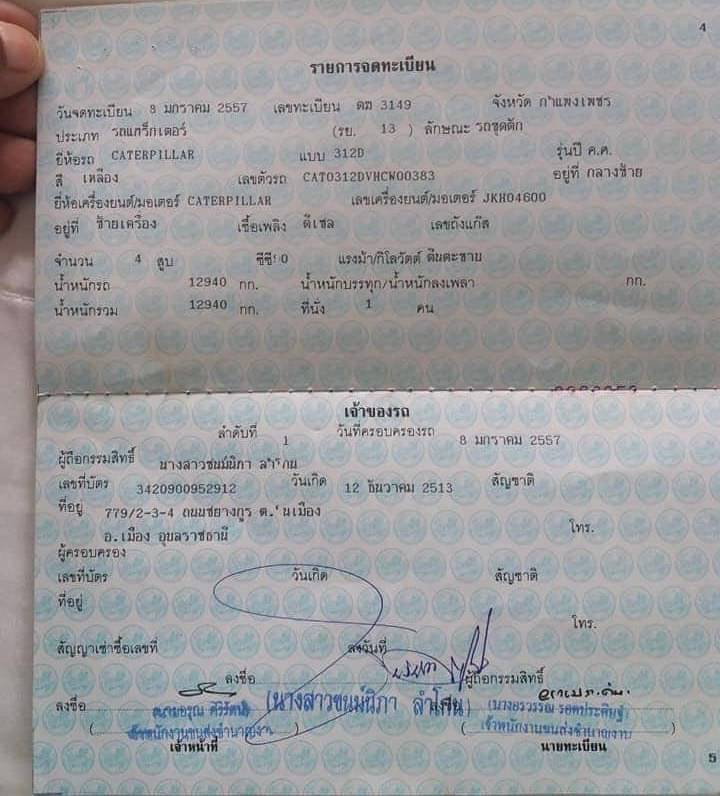 4
รายการจดทะเบียน
วันจดทะเบียน 8 มกราคม 2557 เลขทะเบียน ตฆ 3149 จังหวัด กำแพงเพชร
ประเภท รถแทร็กเตอร์ (รย. 13 ) ลักษณะ รถขุดตัก
ยี่ห้อรถ CATERPILLAR แบบ 312D รุ่นปี ค.ศ.
สี เหลือง เลขตัวรถ CAT0312DVHCW00383 อยู่ที่ กลางซ้าย
ยี่ห้อเครื่องยนต์/มอเตอร์ CATERPILLAR เลขเครื่องยนต์/มอเตอร์ JKH04600
อยู่ที่ ซ้ายเครื่อง เชื้อเพลิง ดีเซล เลขถังแก๊ส
จำนวน 4 สูบ ซีซี แรงม้า/กิโลวัตต์ ตีนตะขาบ
น้ำหนักรถ 12940 กก. น้ำหนักบรรทุก/น้ำหนักลงเพลา กก.
น้ำหนักรวม 12940 กก. ที่นั่ง 1 คน
เจ้าของรถ
ลำดับที่ 1 วันที่ครอบครองรถ 8 มกราคม 2557
ผู้ถือกรรมสิทธิ์ นางสาวชนม์นิภา
เลขที่บัตร 3420900952912 วันเกิด 12 ธันวาคม 2513 สัญชาติ
ที่อยู่ 779/2-3-4 ถนนชยางกูร ต. ในเมือง
อ.เมือง อุบลราชธานี โทร.
ผู้ครอบครอง
เลขที่บัตร วันเกิด สัญชาติ
ที่อยู่
โทร.
สัญญาเช่าซื้อเลขที่ ลงวันที่
ลงชื่อ ผู้ถือกรรมสิทธิ์
ลงชื่อ (นางสาวชนม์นิภา ลำโกน) (นางอรวรรณ รอดประดิษฐ์)
เจ้าพนักงานขนส่งชำนาญงาน เจ้าพนักงานขนส่งชำนาญงาน
เจ้าหน้าที่ นายทะเบียน
5